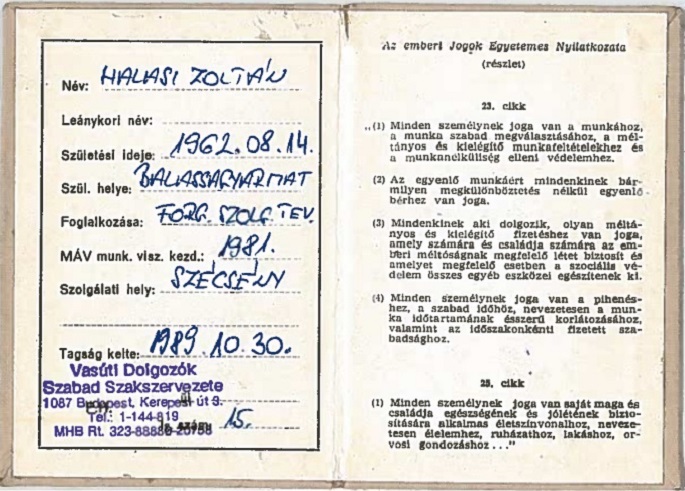 Név: HALASI ZOLTÁN
Leánykori név:
Születési ideje: 1962.08.14.
Szül. helye: BALASSAGYARMAT
Foglalkozása: FORG. SZOLG. TEV.
MÁV munk. visz. kezd.: 1981.
Szolgálati hely: SZÉCSÉNY
Tagság kelte: 1989.10.30.
Vasúti Dolgozók
Szabad Szakszervezete
1087 Budapest, Kerepesi út 3.
Tel.: 1-144-819
MHB Rt. 323-88880-20758
15.
Az emberi Jogok Egyetemes Nyilatkozata
(részlet)
23. cikk
„(1) Minden személynek joga van a munkához,
a munka szabad megválasztásához, a mél-
tányos és kielégítő munkafeltételekhez és
a munkanélküliség elleni védelemhez.
(2) Az egyenlő munkáért mindenkinek bár-
milyen megkülönböztetés nélkül egyenlő
bérhez van joga.
(3) Mindenkinek aki dolgozik, olyan méltá-
nyos és kielégítő fizetéshez van joga,
amely számára és családja számára az em-
beri méltóságnak megfelelő létet biztosít és
amelyet megfelelő esetben a szociális vé-
delem összes egyéb eszközei egészítenek ki.
(4) Minden személynek joga van a pihenés-
hez, a szabad időhöz, nevezetesen a mun-
ka időtartamának ésszerű korlátozásához,
valamint az időszakonkénti fizetett sza-
badsághoz.
25. cikk
(1) Minden személynek joga van saját maga és
családja egészségének és jólétének bizto-
sítására alkalmas életszínvonalhoz, neveze-
tesen élelemhez, ruházathoz, lakáshoz, or-
vosi gondozáshoz..."